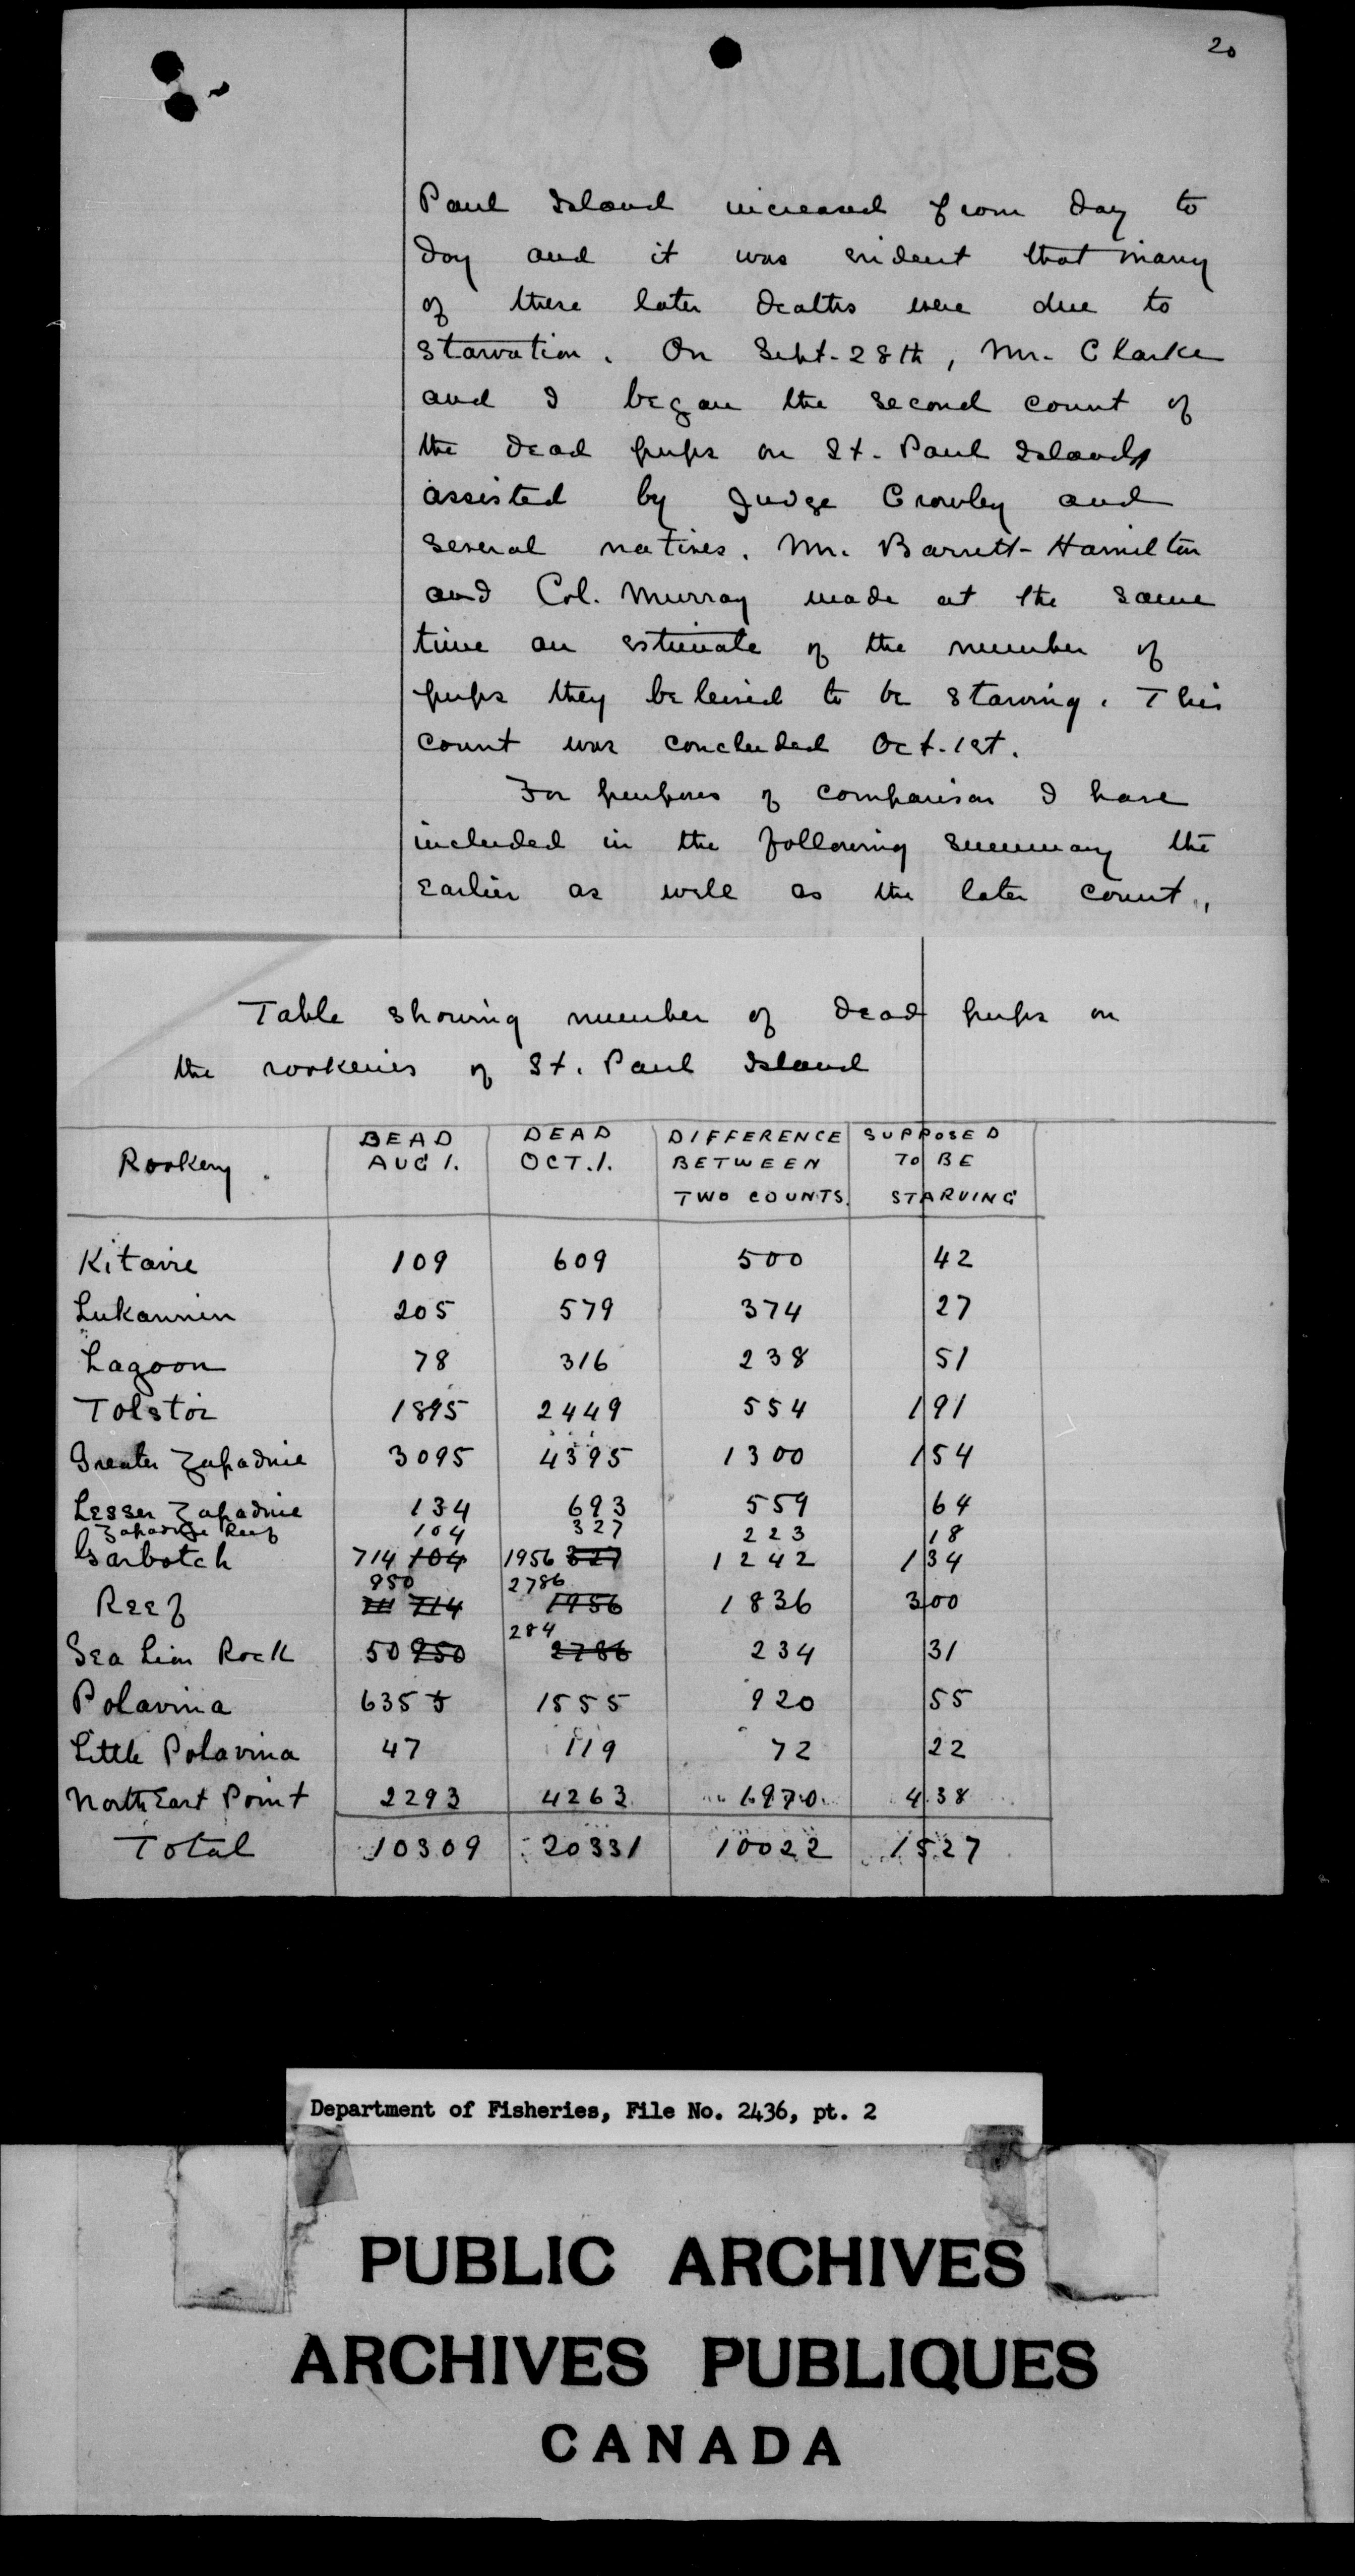 20
Paul Island increased from day to
day and it was evident that many
of these later deaths were due to
starvation. On Sept. 28th, Mr. Clarke
and I began the second count of
the dead pups on St. Paul Island
assisted by Judge Crowley and
several natives. Mr. Barrett-Hamilton
and Col. Murray made at the same
time an estimate of the number of
pups they beleived to be starving. This
count was concluded Oct. 1st.
For purposes of comparison I have
included in the following summary the
earlier as well as the later count.
Table showing number of dead pups on
the rookeries of St. Paul Island
Rookery. DEAD AUG 1. DEAD OCT. 1. DIFFERENCE BETWEEN TWO COUNTS. SUPPOSED TO BE STARVING
Kitavie 109 609 500 42
Lukannin 205 579 374 27
Lagoon 78 316 238 51
Tolstoi 1895 2449 554 191
Greater Zapadnie 3095 4395 1300 154
Lesser Zapadnie 134 693 559 64
Zapadnie Reef 104 327 223 18
Garbotch 714 104 1956 327 1242 134
Reef 950 714 2786 1956 1836 300
Sea Lion Rock 50 950 284 2786 234 31
Polavina 635 1555 920 55
Little Polavina 47 119 72 22
North East Point 2293 4263 1970 438
Total 10309 20331 10022 1527
Department of Fisheries, File No. 2436, pt. 2
PUBLIC ARCHIVES
ARCHIVES PUBLIQUES
CANADA